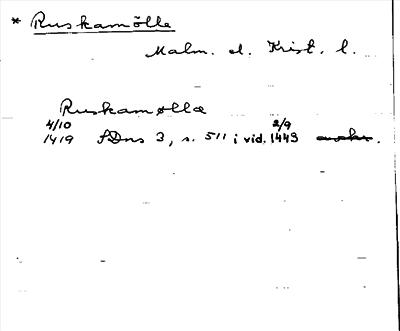 * Ruskamölle
Malm. el. Krist. l.
Ruskamølla
4/10 2/9
1419 SDns 3, s. 511 i vid. 1443 .